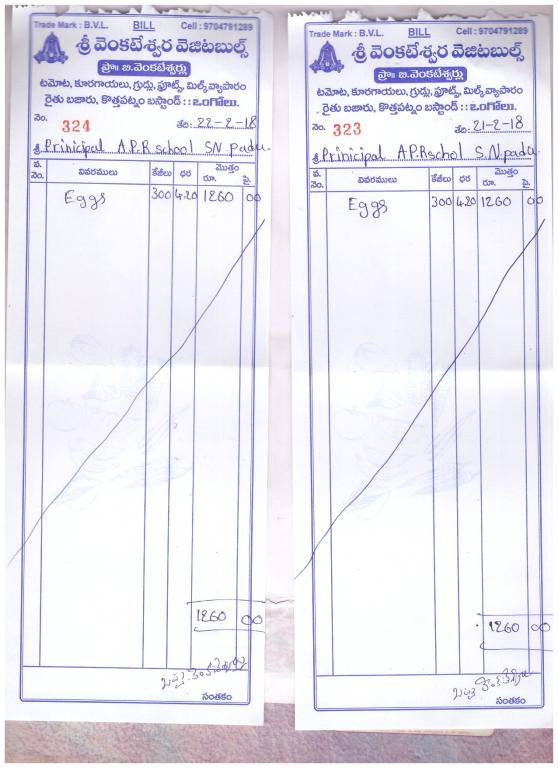 Trade Mark : B.V.L. BILL Cell : 9704791289
శ్రీ వెంకటేశ్వర వెజిటబుల్స్
ప్రొః బి.వెంకటేశ్వర్లు
టమోట, కూరగాయలు, గ్రుడ్లు, ఫ్రూట్స్, మిల్క్ వ్యాపారం
రైతు బజారు, కొత్తపట్నం బస్టాండ్ : : ఒంగోలు.
నెం. 324 తేది : 22-2-18
శ్రీ Prinicipal A.P.R school S.N. padu.
వ. నెం. వివరములు కేజీలు ధర మొత్తం రూ. పై.
Eggs 300 4.20 1260 00
1260 00
సంతకం
Trade Mark : B.V.L. BILL Cell : 9704791289
శ్రీ వెంకటేశ్వర వెజిటబుల్స్
ప్రొః బి.వెంకటేశ్వర్లు
టమోట, కూరగాయలు, గ్రుడ్లు, ఫ్రూట్స్, మిల్క్ వ్యాపారం
రైతు బజారు, కొత్తపట్నం బస్టాండ్ : : ఒంగోలు.
నెం. 323 తేది : 21-2-18
శ్రీ Prinicipal A.P.R schol S.N. padu.
వ. నెం. వివరములు కేజీలు ధర మొత్తం రూ. పై.
Eggs 300 4.20 1260 00
1260 00
సంతకం